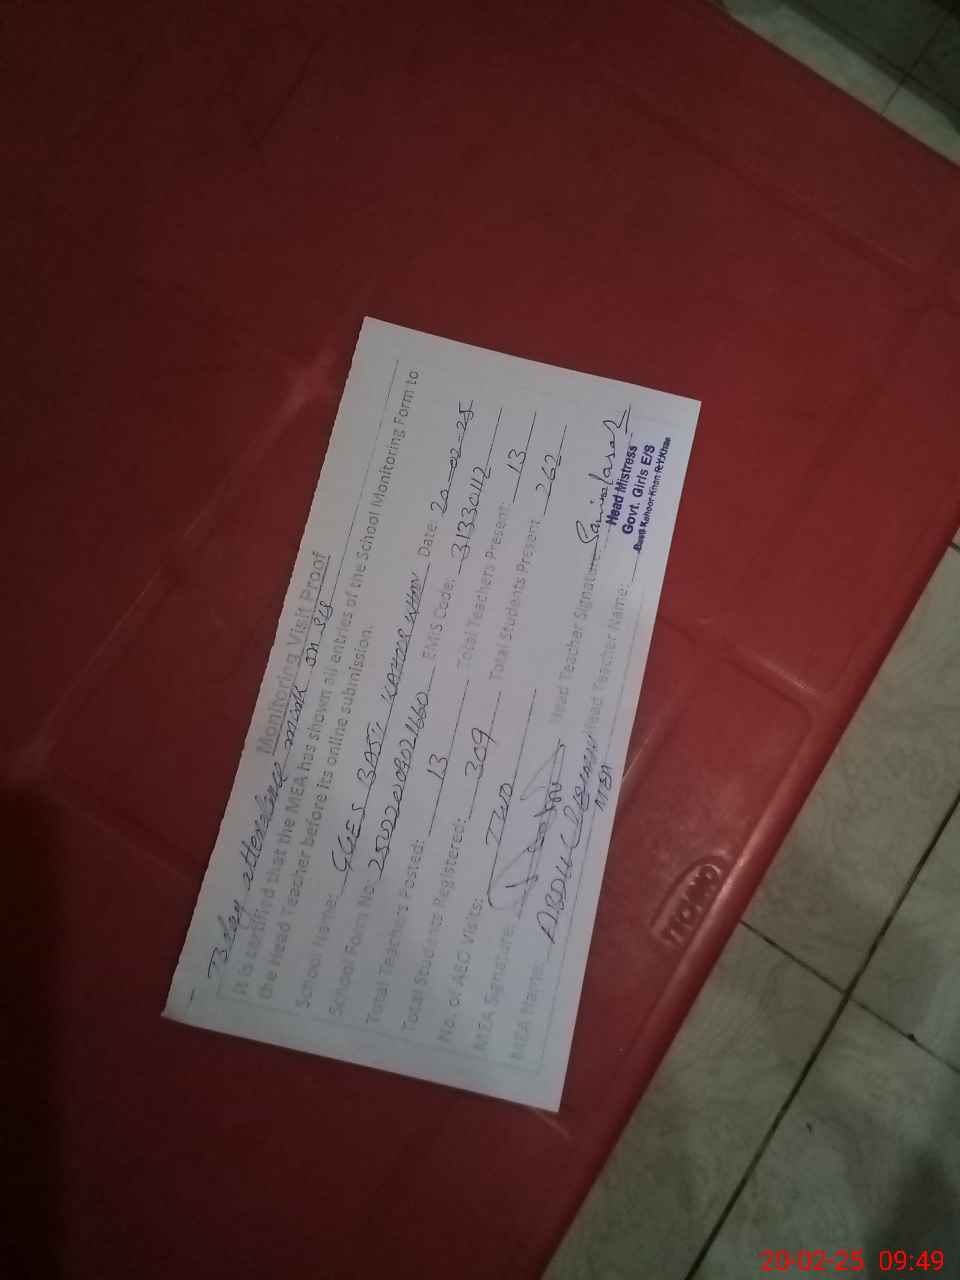 Monitoring Visit Proof
It is certified that the MEA has shown all entries of the School Monitoring Form to
the Head Teacher before its online submission.
School Name: GGES BASTI KAHOOR KHAN Date: 20-02-25
School Form No: EMIS Code: 31330112
Total Teachers Posted: 13 Total Teachers Present: 13
Total Students Registered: 309 Total Students Present: 262
No. of AEO Visits: TWO
MEA Signature: Head Teacher Signature:
MEA Name: ABDUL Head Teacher Name:
MEA
Head Mistress
Govt. Girls E/S
Basti Kahoor Khan R.Y.Khan
TECHNO
20-02-25 09:49